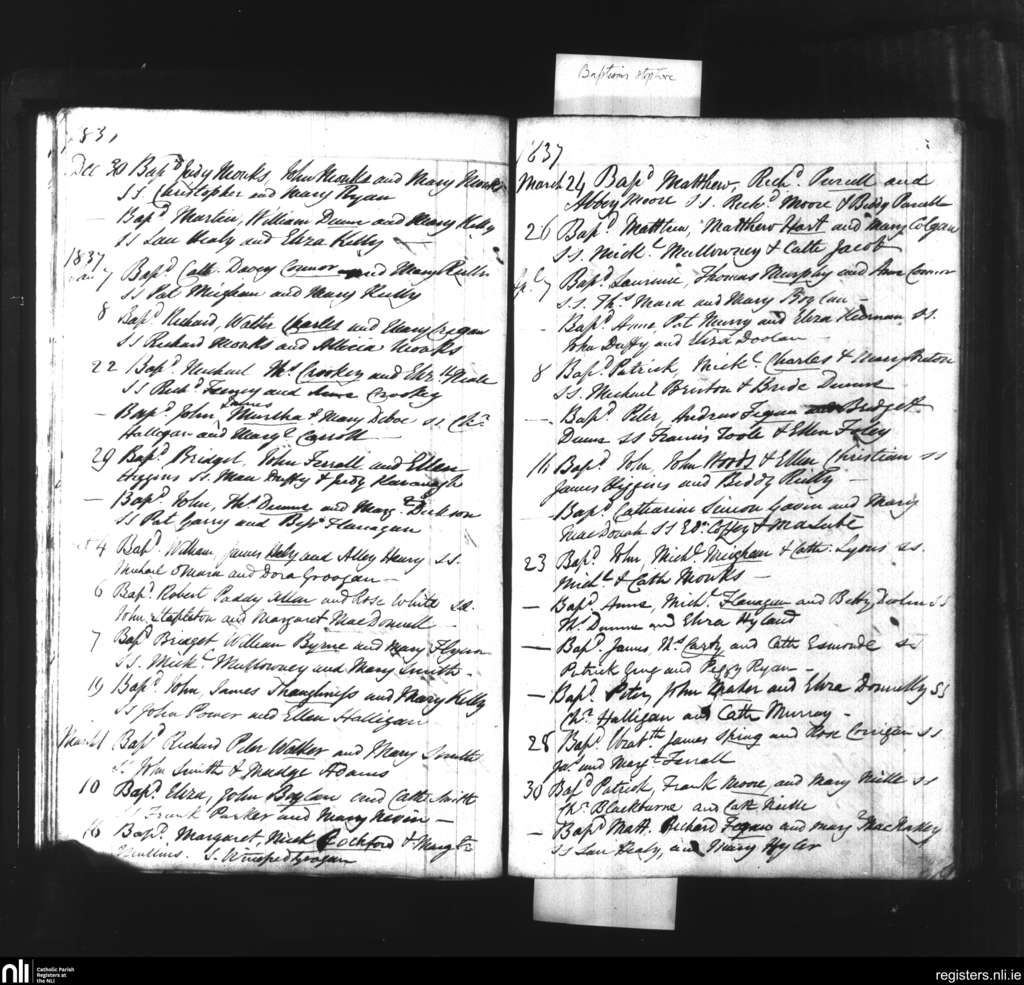 Baptisms
1831
Dec 30 Bapd Judy Monks, John Monks and Mary Monks
SS Christopher and Mary Ryan
— Bapd Martin, William Dunne and Mary
SS Lau Healy and Eliza Kelly
1837
7 Bapd Cath. Davey Connor and Mary
SS Pat Meighan and Mary Kelly
8 Bapd Richard, Walter Charles and Mary Crogan
SS Richard Monks and Allicia Monks
22 Bapd Michael Ths Crookey and Elizth Neale
SS Richd Feeney and Anne Crookey
— Bapd John James Murtha & Mary Deboe SS Chr.
Halligan and Mary Carroll
29 Bapd Bridget, John Ferrall and Ellen
Higgins SS. Duffy & Judy Kavanagh
— Bapd John, Ths Dunne and Margt Dickson
SS Pat Garry and Flanagan
4 Bapd William, James Healy and Alley Henry SS.
Michael OMara and Dora Groogan —
6 Bapd Robert Paddy and Rose White SS.
John Stapleton and Margaret MacDonnell —
7 Bapd Bridget William Byrne and Mary Flynn
SS. Michl Mullowney and Mary Smith —
19 Bapd John, James and Mary Kelly
SS John Power and Ellen Halligan
March 1 Bapd Richard Peter Walker and Mary Smith
SS John Smith & Madge Adams
10 Bapd Eliza, John Boylan and Cath Smith
Frank Parker and Mary Nevin —
16 Bapd. Margaret, Mick Rochford & Margt
Mullins. S. Winefred Grogan
1837
March 24 Bapd Matthew, Richd. Purcell and
Abbey Moore SS. Richd Moore & Biddy Purcell
26 Bapd Matthew, Matthew Hart and Mary Colgan
SS. Michl Mullowney & Cath Jacob
Apl 7 Bapd. Laurence, Thomas Murphy and Anne Connor
SS. Ths Mara and Mary Boylan —
— Bapd Anne Pat Murry and Eliza Kiernan SS.
John Duffy and Eliza Doolan —
8 Bapd Patrick, Michl Charles & Mary Brinton
SS. Michael Brinton & Bride Dunne
— Bapd Peter, Andrew Fegan and Bridget
Dunne SS Francis Toole & Ellen Foley
16 Bapd John, John Woods & Ellen Christian SS
James Higgins and Biddy Reilly —
— Bapd Catharine Simon Gavin and Mary
MacDonah SS Edw. &
23 Bapd John, Michl Meighan & Cath. Lyons SS.
Michl & Cath Monks —
— Bapd Anne, Michl. Flanagan and Betty Doolin SS
Ths Dunne and Eliza Hyland
— Bapd. James, Ths Carty and Cath Esmonde SS
Patrick and Peggy Ryan —
— Bapd. Peter, John Maher and Eliza Donnelly SS
Chr. Halligan and Cath Murray —
28 Bapd. James Spring and Rose Corrigan SS
Jas. and Margt Ferrall
30 Bapd Patrick, Frank Moore, and Mary SS
Ths Blackburne and Cath
— Bapd Matt. Richard Fegan and Mary
SS Lau Healy, and Mary
nli
Catholic Parish
Registers at
the NLI
registers.nli.ie